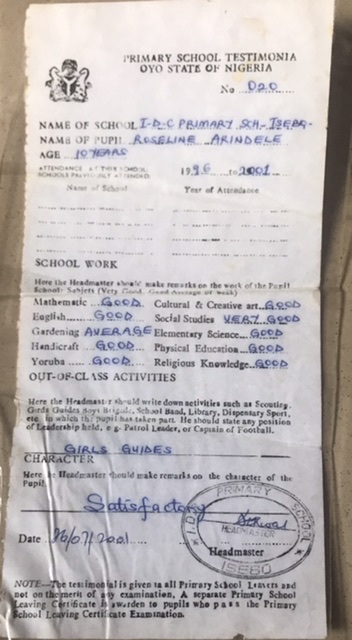 PRIMARY SCHOOL TESTIMONIA
OYO STATE OF NIGERIA
No 020
NAME OF SCHOOL I-D-C PRIMARY SCH-ISEBO-
NAME OF PUPIL ROSELINE ARINDELE
AGE 10 YEARS
ATTENDANCE AT THIS SCHOOL 1996 to 2001
SCHOOLS PREVIOUSLY ATTENDED
Name of School Year of Attendance
SCHOOL WORK
Here the Headmaster should make remarks on the work of the Pupil
School: Subject (Very Good, Good Average or weak)
Mathematic GOOD Cultural & Creative art GOOD
English GOOD Social Studies VERY GOOD
Gardening AVERAGE Elementary Science GOOD
Handicraft GOOD Physical Education GOOD
Yoruba GOOD Religious Knowledge GOOD
OUT-OF-CLASS ACTIVITIES
Here the Headmaster should write down activities such as Scouting,
Girds Guides Boys Brigade, School Band, Library, Dispensary Sport,
etc. in which the pupil has taken part. He should state any position
of Leadership held, e.g. Patrol Leader, or Captain of Football.
GIRLS GUIDES
CHARACTER
Here the Headmaster should make remarks on the character of the
Pupil
Satisfactory
PRIMARY SCHOOL
HEADMASTER
ISEBO
Date 26/07/2001
Headmaster
NOTE—The testimonial is given to all Primary School Leavers and
not on the merit of any examination. A separate Primary School
Leaving Certificate is awarden to pupils who pass the Primary
School Leaving Certificate Examination.